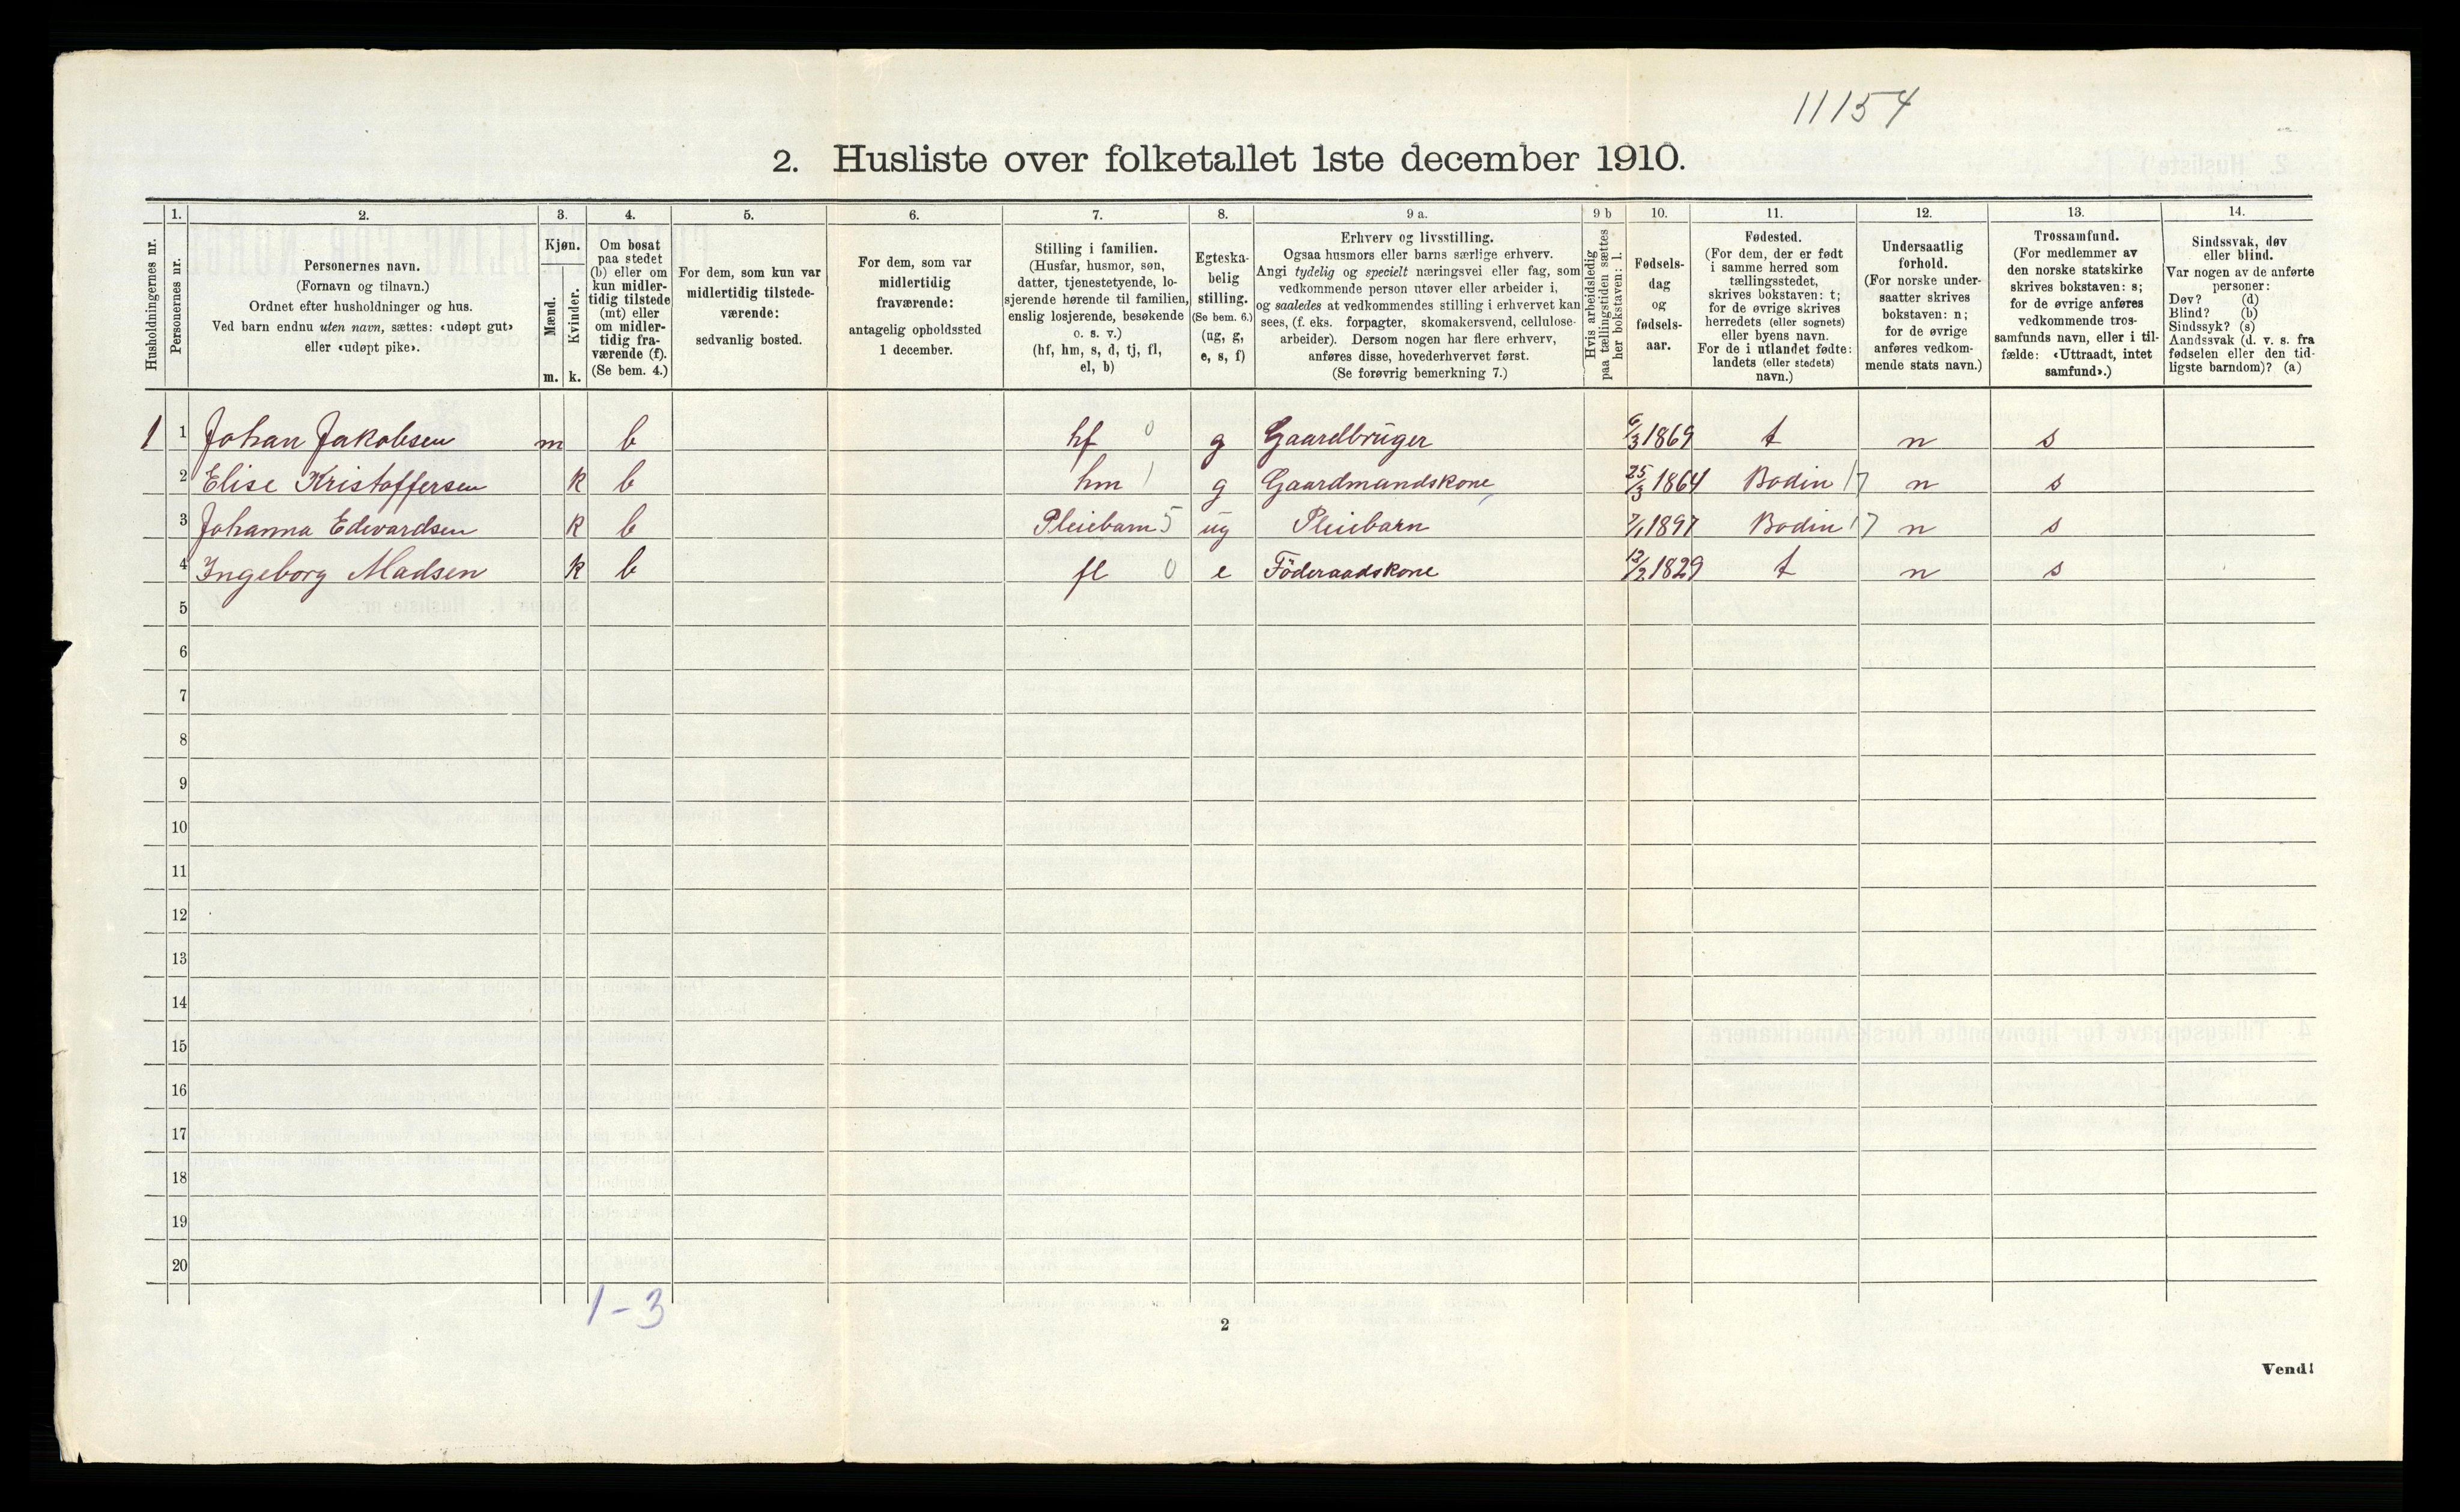 11154
2. Husliste over folketallet 1ste december 1910.
Husholdningernes nr.
1.
Personernes nr.
2.
Personernes navn.
(Fornavn og tilnavn.)
Ordnet efter husholdninger og hus.
Ved barn endnu uten navn, sættes: «udøpt gut»
eller «udøpt pike».
3.
Kjøn.
Mænd.
Kvinder.
m. k.
4.
Om bosat
paa stedet
(b) eller om
kun midler-
tidig tilstede
(mt) eller
om midler-
tidig fra-
værende (f).
(Se bem. 4.)
5.
For dem, som kun var
midlertidig tilstede-
værende:
sedvanlig bosted.
6.
For dem, som var
midlertidig
fraværende:
antagelig opholdssted
1 december.
7.
Stilling i familien.
(Husfar, husmor, søn,
datter, tjenestetyende, lo-
sjerende hørende til familien,
enslig losjerende, besøkende
o. s. v.)
(hf, hm, s, d, tj, fl,
el, b)
8.
Egteska-
belig
stilling.
(Se bem. 6.)
(ug, g,
e, s, f)
9 a.
Erhverv og livsstilling.
Ogsaa husmors eller barns særlige erhverv.
Angi tydelig og specielt næringsvei eller fag, som
vedkommende person utøver eller arbeider i,
og saaledes at vedkommendes stilling i erhvervet kan
sees, (f. eks. forpagter, skomakersvend, cellulose-
arbeider). Dersom nogen har flere erhverv,
anføres disse, hovederhvervet først.
(Se forøvrig bemerkning 7.)
9 b
Hvis arbeidsledig
paa tællingstiden sættes
her bokstaven: l.
10.
Fødsels-
dag
og
fødsels-
aar.
11.
Fødested.
(For dem, der er født
i samme herred som
tællingsstedet,
skrives bokstaven: t;
for de øvrige skrives
herredets (eller sognets)
eller byens navn.
For de i utlandet fødte:
landets (eller stedets)
navn.)
12.
Undersaatlig
forhold.
(For norske under-
saatter skrives
bokstaven: n;
for de øvrige
anføres vedkom-
mende stats navn.)
13.
Trossamfund.
(For medlemmer av
den norske statskirke
skrives bokstaven: s;
for de øvrige anføres
vedkommende tros-
samfunds navn, eller i til-
fælde: «Uttraadt, intet
samfund».)
14.
Sindssvak, døv
eller blind.
Var nogen av de anførte
personer:
Døv? (d)
Blind? (b)
Sindssyk? (s)
Aandssvak (d. v. s. fra
fødselen eller den tid-
ligste barndom)? (a)
1 1 Johan Jakobsen m b hf 0 g Gaardbruger 6/3 1869 t n s
2 Elise Kristoffersen k b hm 1 g Gaardmandskone 25/3 1864 Bodin 17 n s
3 Johanna Edevardsen k b Pleiebarn 5 ug Pleiebarn 7/1 1897 Bodin 17 n s
4 Ingeborg Madsen k b fl 0 e Föderaadskone 12/2 1829 t n s
5
6
7
8
9
10
11
12
13
14
15
16
17
18
19
20
1-3
2
Vend!